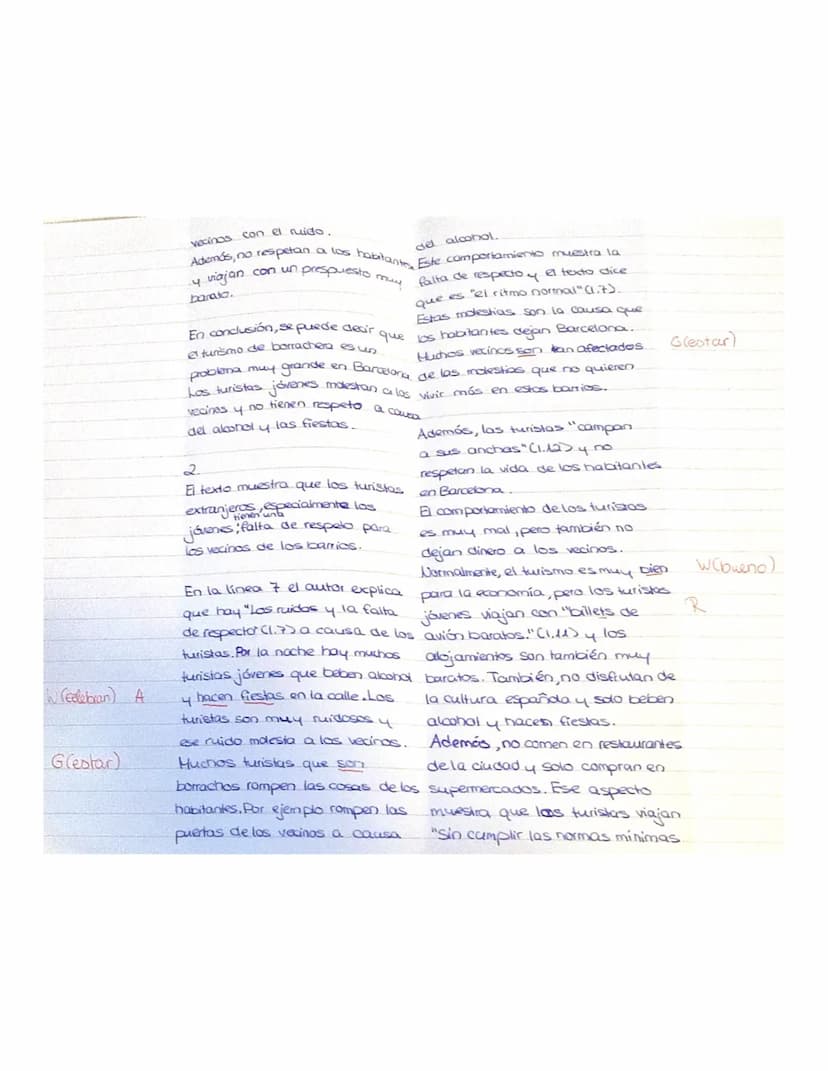 vecinos con el ruido.
Además, no respetan a los habitantes
y viajan con un prespuesto muy
barato.
En conclusión, se puede decir que
el turismo de borrachera es un
problema muy grande en Barcelona.
Los turistas jóvenes molestan a los
vecinos y no tienen respeto a causa
del alcohol y las fiestas.
2.
El texto muestra que los turistas
extranjeros, especialmente los
tienen una
jóvenes; falta de respeto para
los vecinos de los barrios.
En la línea 7 el autor explica
que hay "Los ruidos y la falta
de respecto" (l.7) a causa de los
turistas. Por la noche hay muchos
turistas jóvenes que beben alcohol
W(celebran) A
y hacen fiestas en la calle. Los
turistas son muy ruidosos y
ese ruido molesta a los vecinos.
G(estar)
Muchos turistas que son
borrachos rompen las cosas de los
habitantes. Por ejemplo rompen las
puertas de los vecinos a causa
del alcohol.
Este comportamiento muestra la
falta de respecto y el texto dice
que es "el ritmo normal" (l.7).
Estas molestias son la causa que
los habitantes dejan Barcelona.
Muchos vecinos son tan afectados
G(estar)
de las molestias que no quieren
vivir más en estos barrios.
Además, los turistas "campan
a sus anchas" (l.12) y no
respetan la vida de los habitantes
en Barcelona.
El comportamiento de los turistas
es muy mal, pero también no
dejan dinero a los vecinos.
Normalmente, el turismo es muy bien
W(bueno)
para la economía, pero los turistas
R
jóvenes viajan con "billets de
avión baratos." (l.11) y los
alojamientos son también muy
baratos. También, no disfrutan de
la cultura española y solo beben
alcohol y hacen fiestas.
Además, no comen en restaurantes
de la ciudad y solo compran en
supermercados. Ese aspecto
muestra que los turistas viajan
"Sin cumplir las normas mínimas